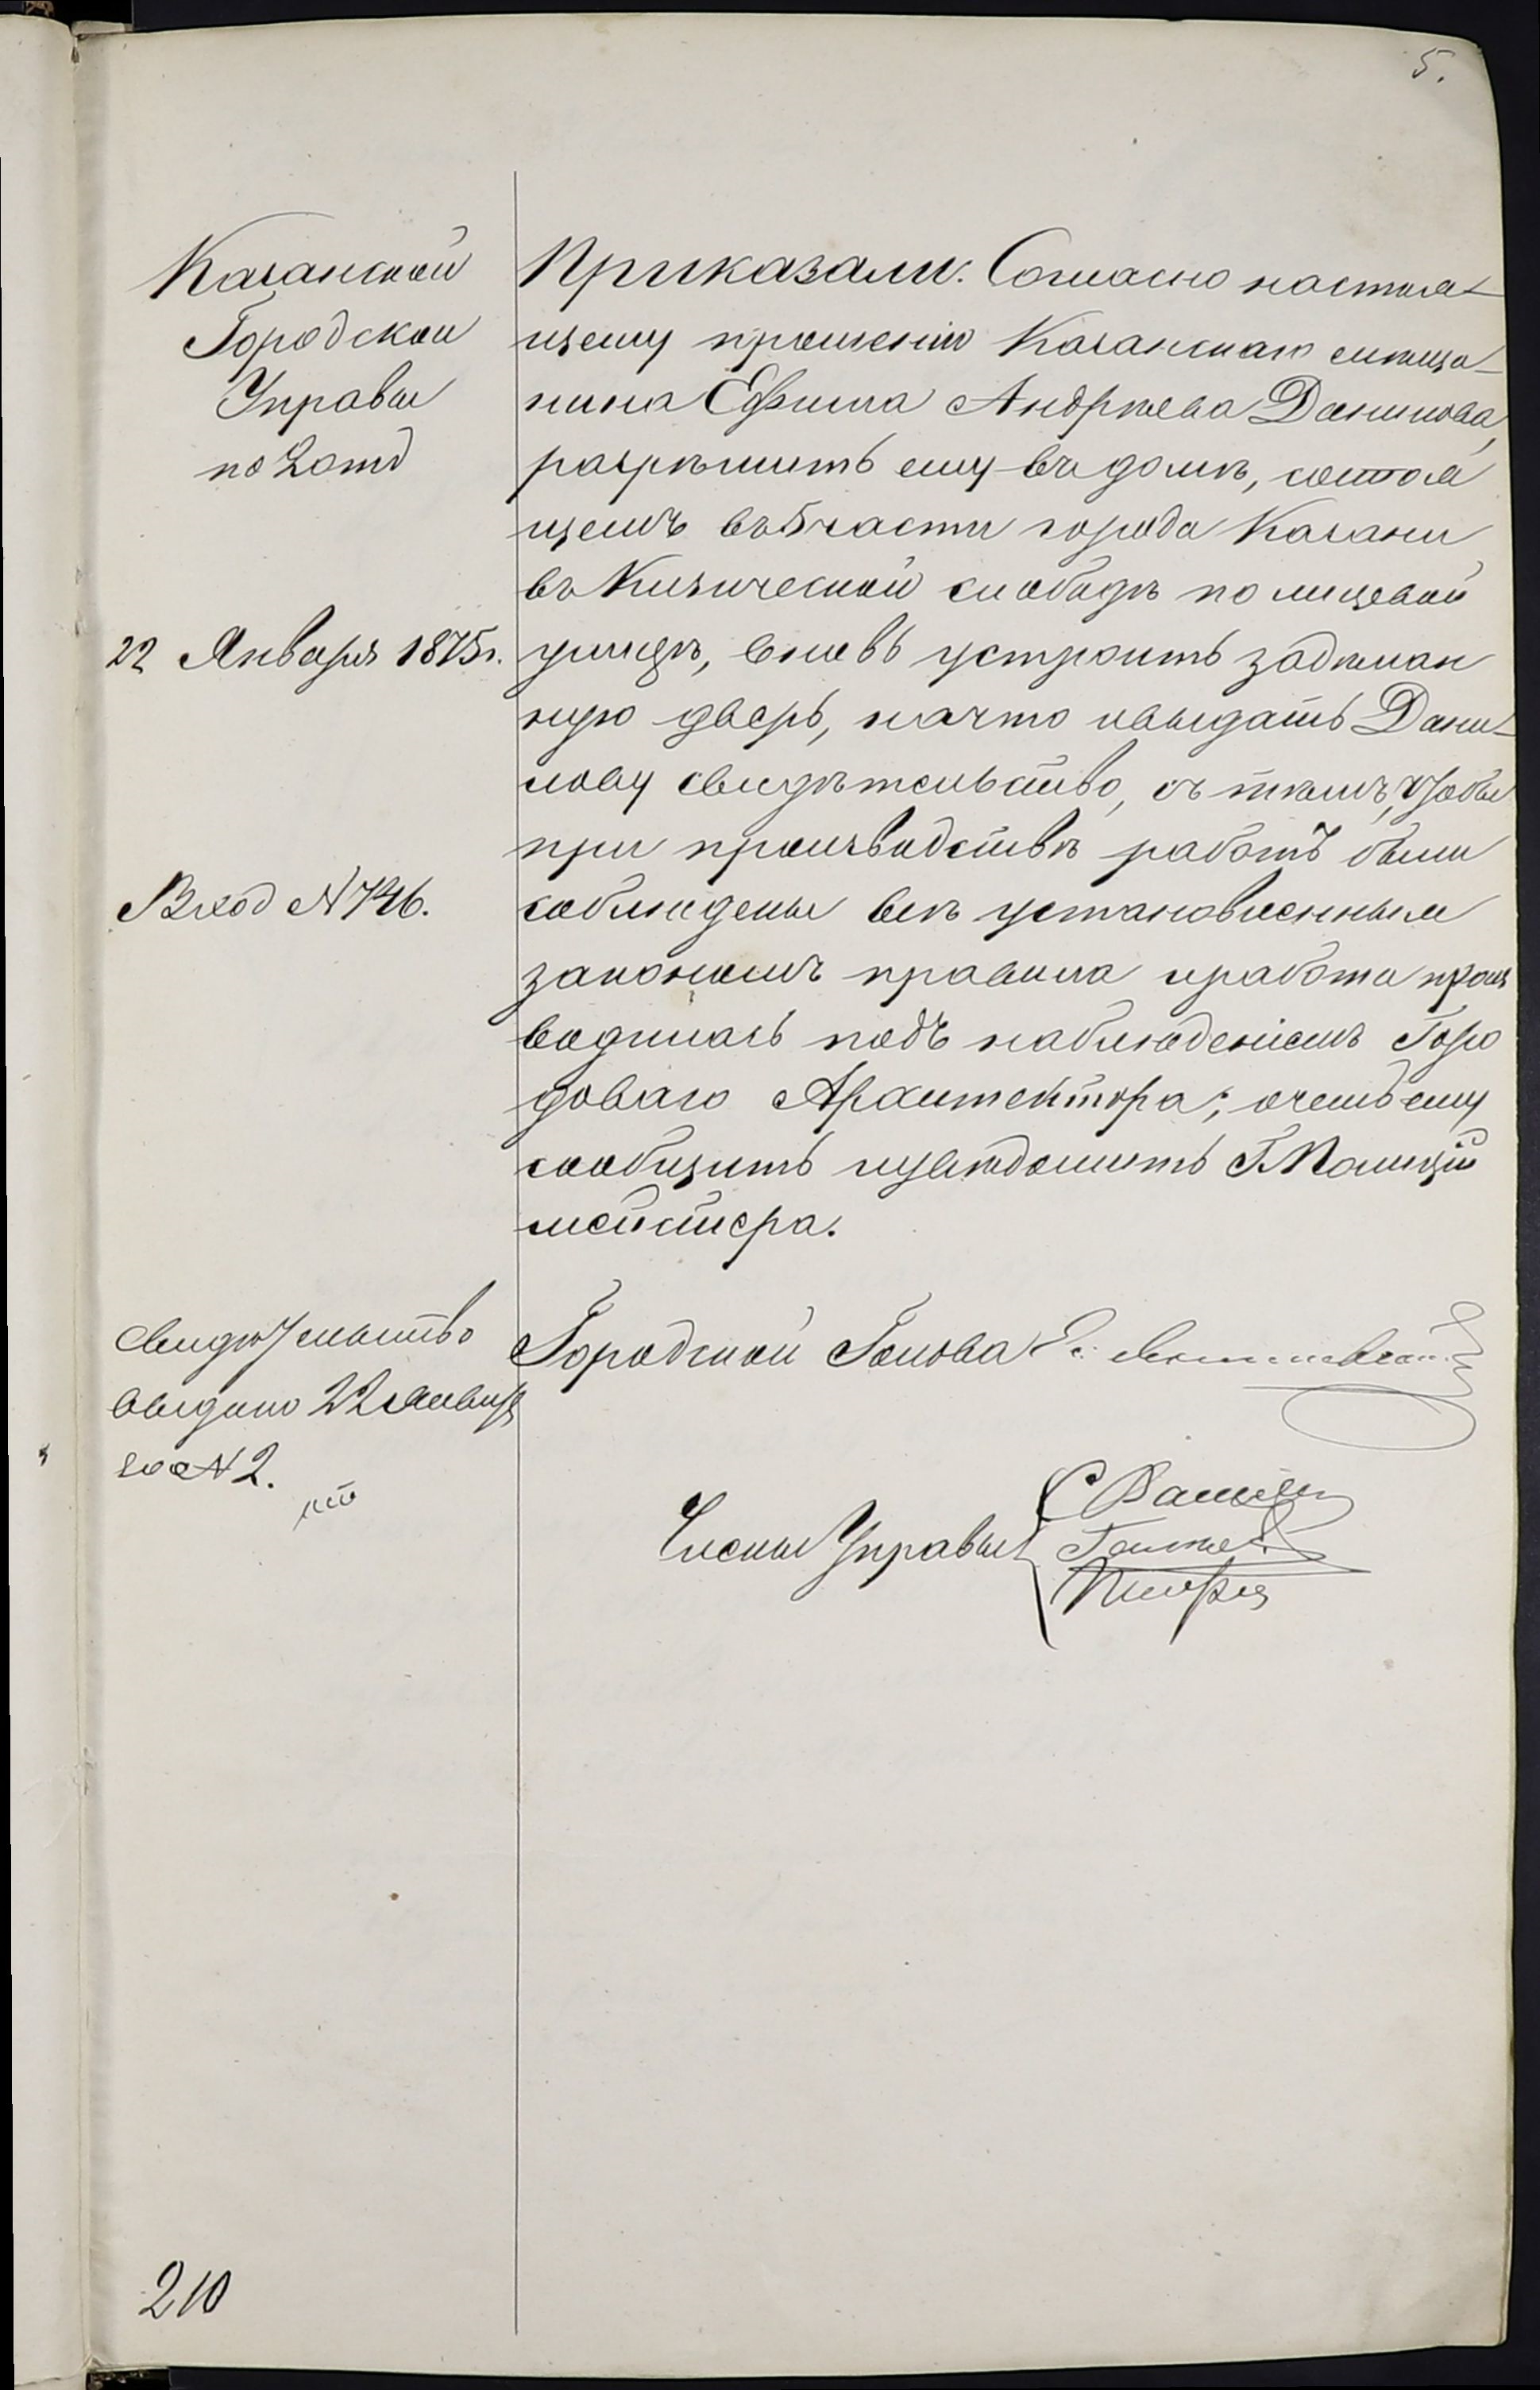 5.
Казанской
Городской
Управы
по 2 отд
22 Января 1875 г.
Вход N 746.
Свидѣтельство
выдано 22 Января
за N 2.
Приказали: Согласно настоя-
щему прошенію Казанскаго мѣща-
нина Ефима Андрѣева Данилова,
разрѣшить ему въ домѣ, состоя
щемъ въ 5 части города Казани
въ Кизической слободѣ по лицевой
улицѣ, вновь устроить
ную дверь, на что и выдать Дани-
лову свидѣтельство, съ тѣмъ, чтобы
при производствѣ работъ были
соблюдены всѣ установленныя
закономъ правила и работа произ
водилась подъ наблюденіемъ Горо
доваго Архитектора; о чемъ ему
сообщить и увѣдомить Г. Полицій
мейстера.
Городской Голова
Члены Управы
210